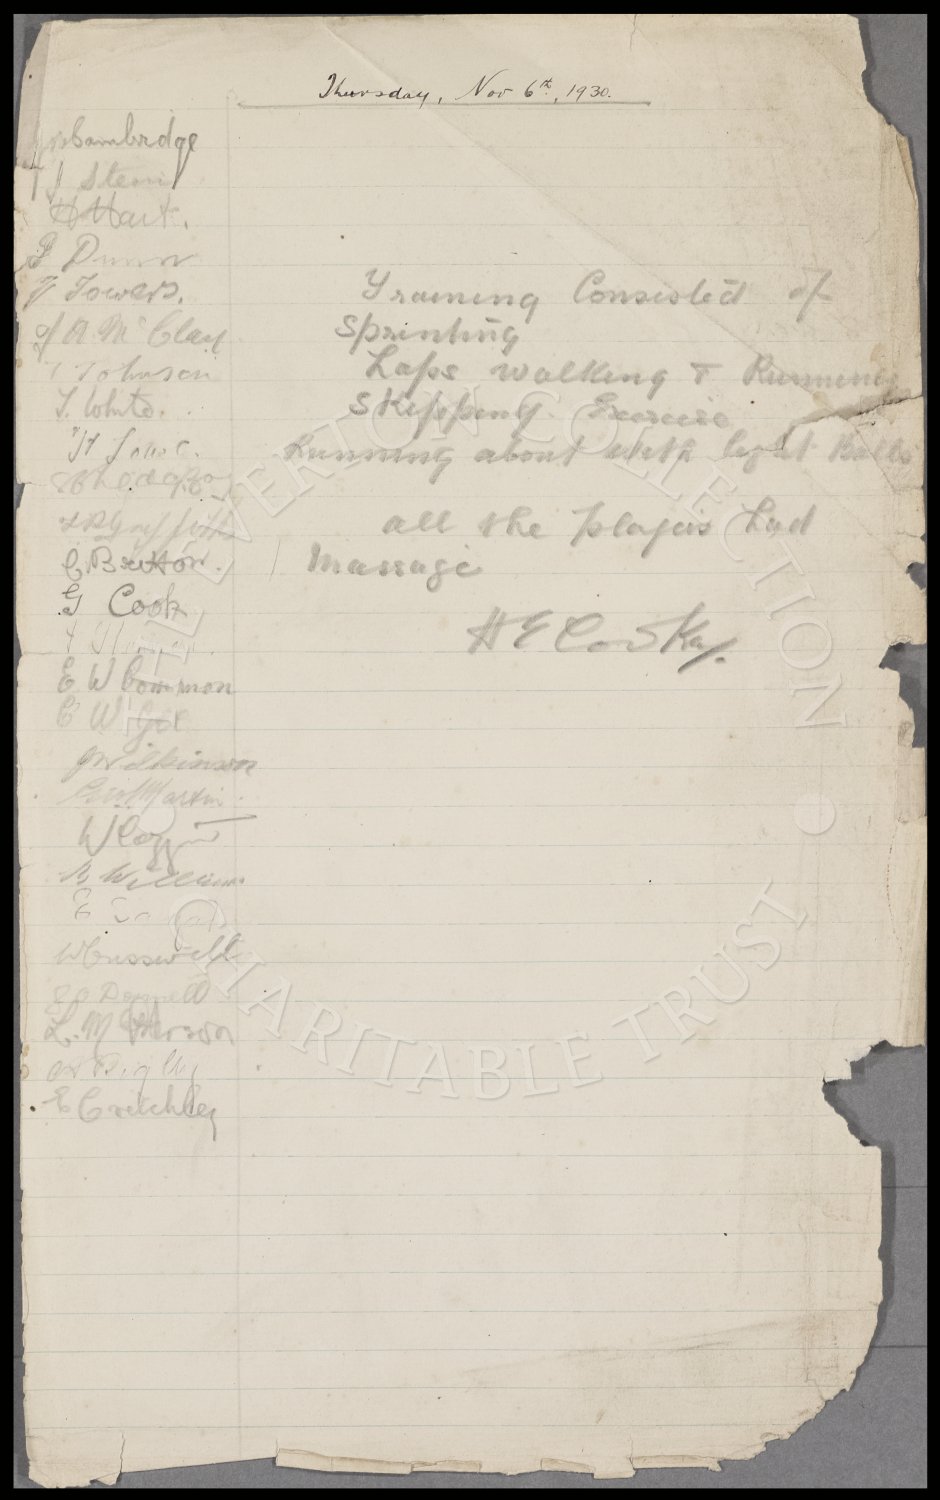 Thursday, Nov 6th, 1930.
Bambridge
T J Stein
H Hart.
J Dunn
J Towers.
J A McClay
T Johnson
T. White.
Training Consisted of
Sprinting
Laps walking & Running
Skipping. Exercise
Running about with light Balls
all the players had
Massage
H E Cooke.
C. Britton.
G Cook
E W Common
C W Gee
J Wilkinson
Geo Martin.
W Coggins
W Williams
W Cresswell
L. McPherson
E Critchley
THE EVERTON COLLECTION
CHARITABLE TRUST